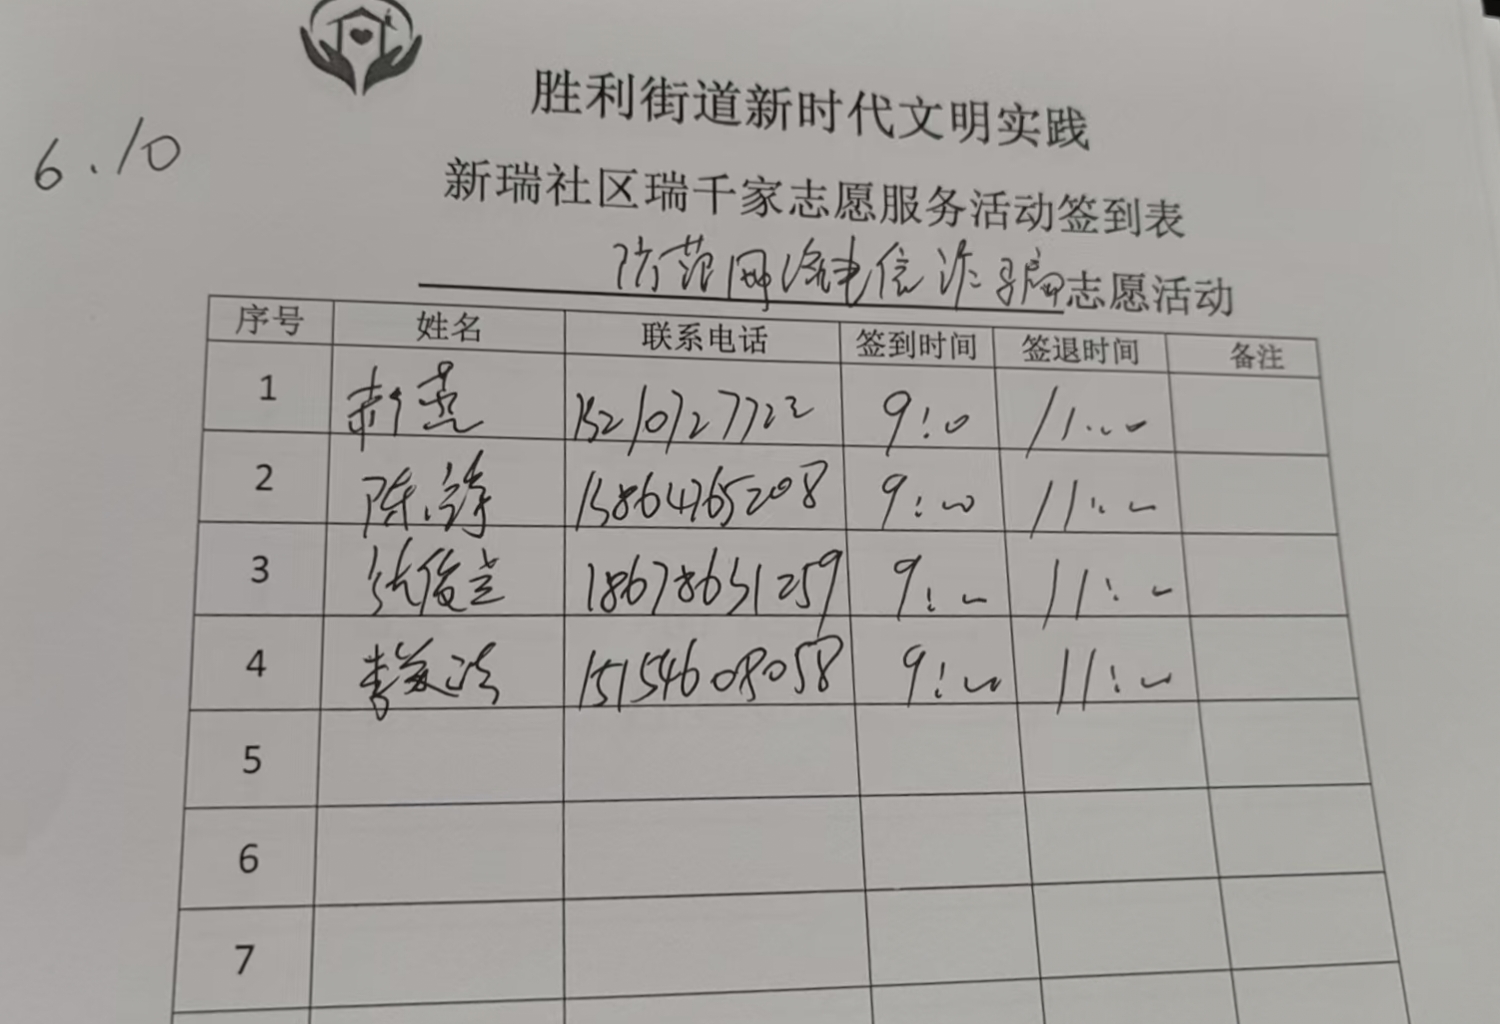 6.10
胜利街道新时代文明实践
新瑞社区瑞千家志愿服务活动签到表
防范网络电信诈骗志愿活动
序号 姓名 联系电话 签到时间 签退时间 备注
1 15210727722 9:00 11:00
2 陈锋 15864765208 9:00 11:00
3 张俊兰 18678651259 9:00 11:00
4 李美洁 15154608058 9:00 11:00
5
6
7